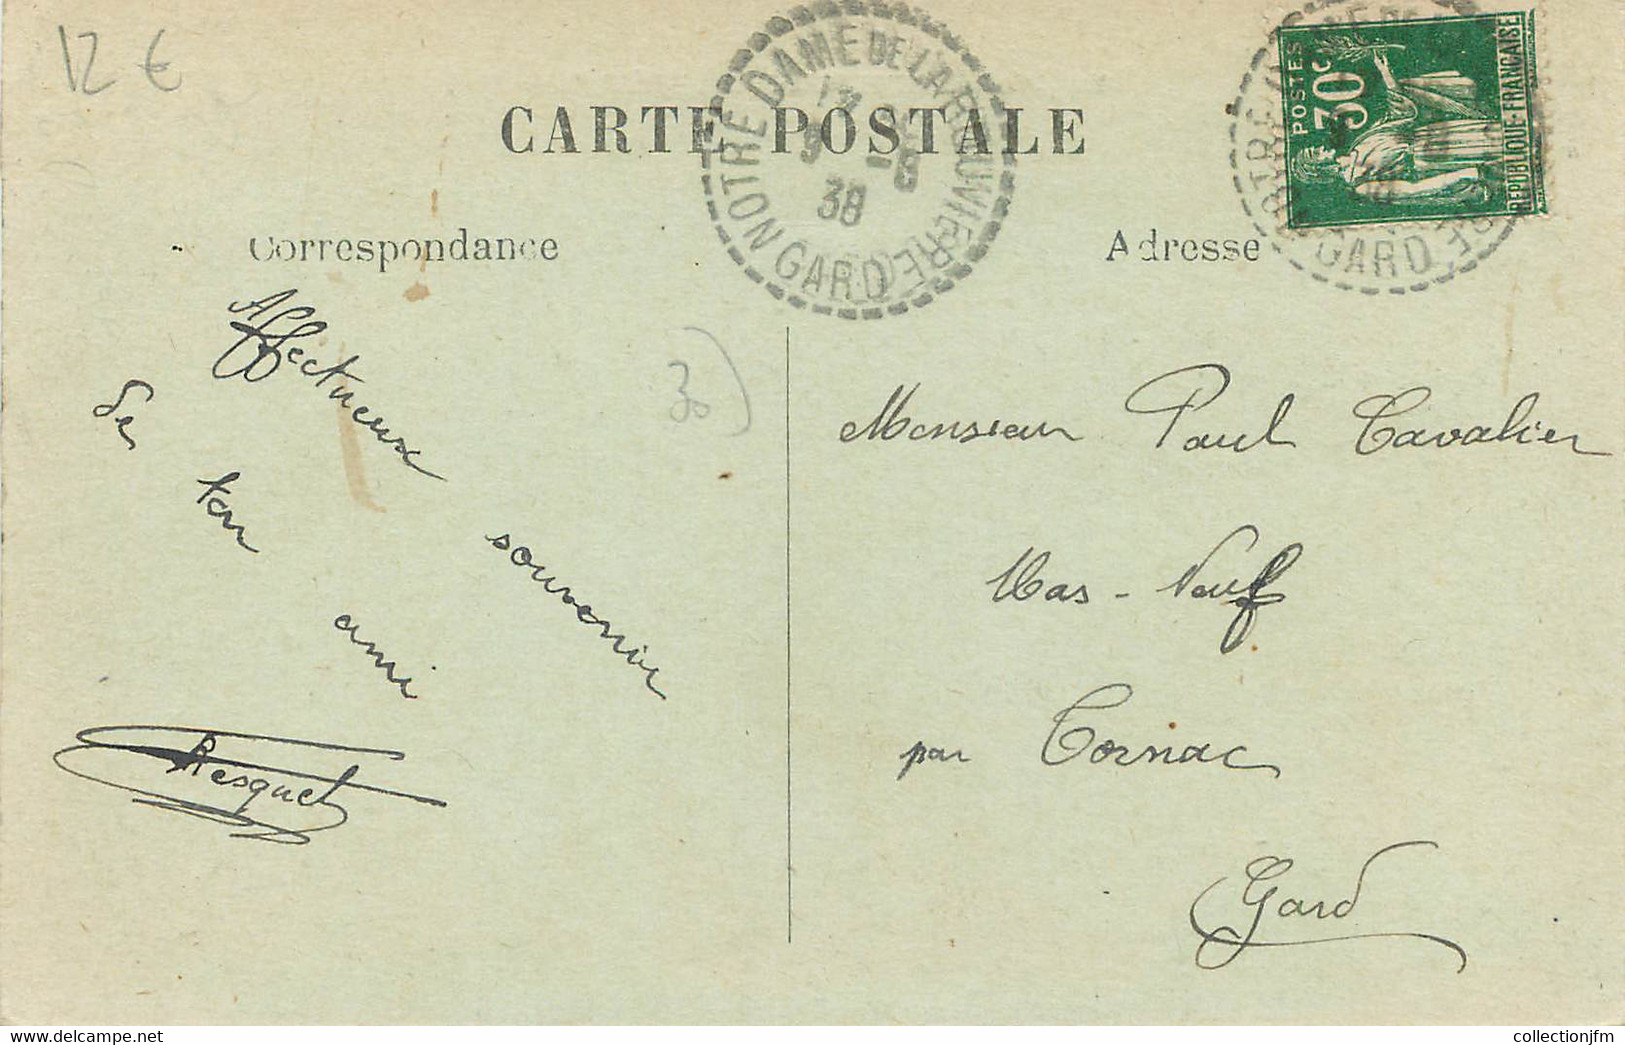 12 €
CARTE POSTALE
NOTRE DAME DE LA ROUVIERE
38
GARD
POSTES
30c
REPUBLIQUE FRANÇAISE
GARD
Correspondance
Adresse
Affectueux souvenir
de ton ami
Resquet
30
Monsieur Paul Cavalier
Mas-Neuf
par Cornac
Gard
collectionjfm